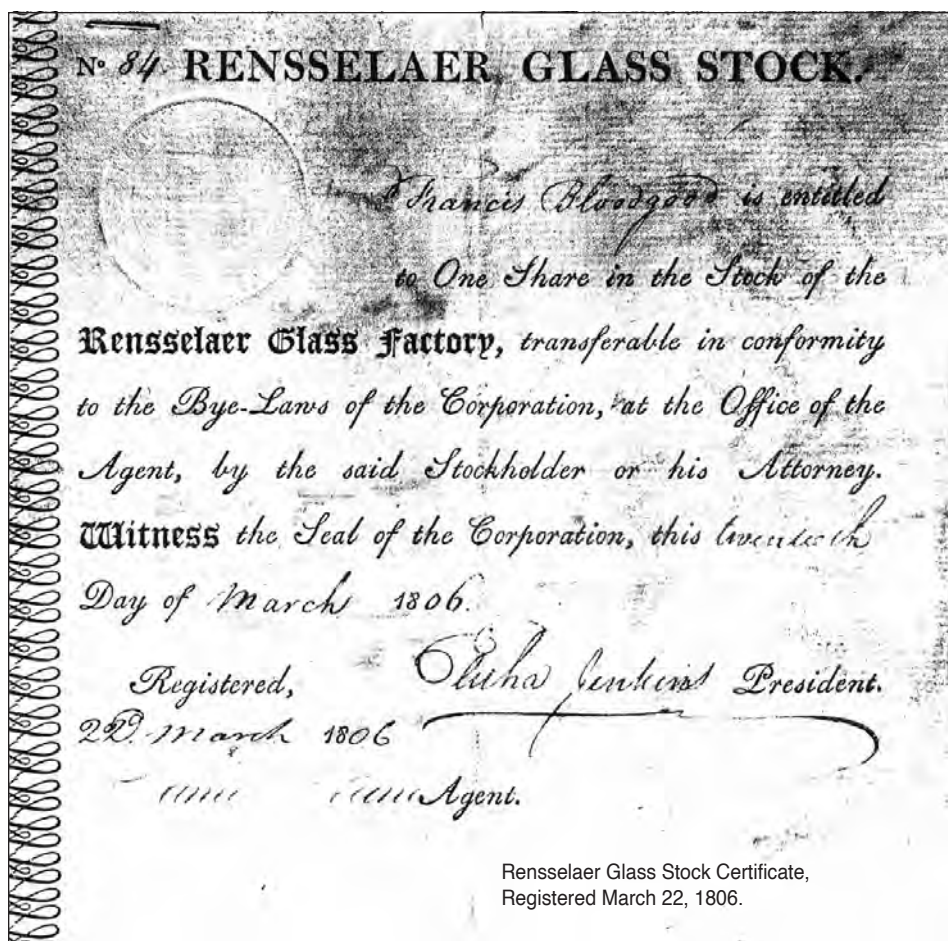 Nº 84. RENSSELAER GLASS STOCK.
Francis Bloodgood is entitled
to One Share in the Stock of the
Rensselaer Glass Factory, transferable in conformity
to the Bye-Laws of the Corporation, at the Office of the
Agent, by the said Stockholder or his Attorney.
Witness the Seal of the Corporation, this twentieth
Day of March 1806.
Registered,
Elisha Jenkins President.
March 1806
Agent.
Rensselaer Glass Stock Certificate,
Registered March 22, 1806.